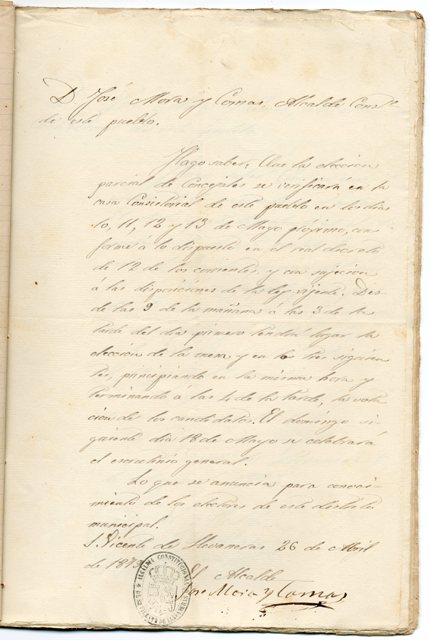 D. José Mora y Comas, Alcalde Consl.
de este pueblo.
Hago saber: Que la eleccion
parcial de Concejales se verificará en la
casa Consistorial de este pueblo en los dias
10, 11, 12 y 13 de Mayo próximo, con
forme á lo dispuesto en el real decreto
de 12 de los corrientes, y con sujecion
á las disposiciones de la ley vijente. Des
de las 9 de la mañana á las 3 de la
tarde del dia primero tendrá lugar la
eleccion de la mesa y en los tres siguien
tes, principiando en la misma hora y
terminando á las 4 de la tarde, la vota
cion de los candidatos. El domingo si
guiente dia 18 de Mayo se celebrará
el escrutinio general.
Lo que se anuncia para conoci
miento de los electores de este distrito
municipal.
S. Vicente de Llevaneras 26 de Abril
de 187
El Alcalde
José Mora y Comas
ALCALDIA CONSTITUCIONAL